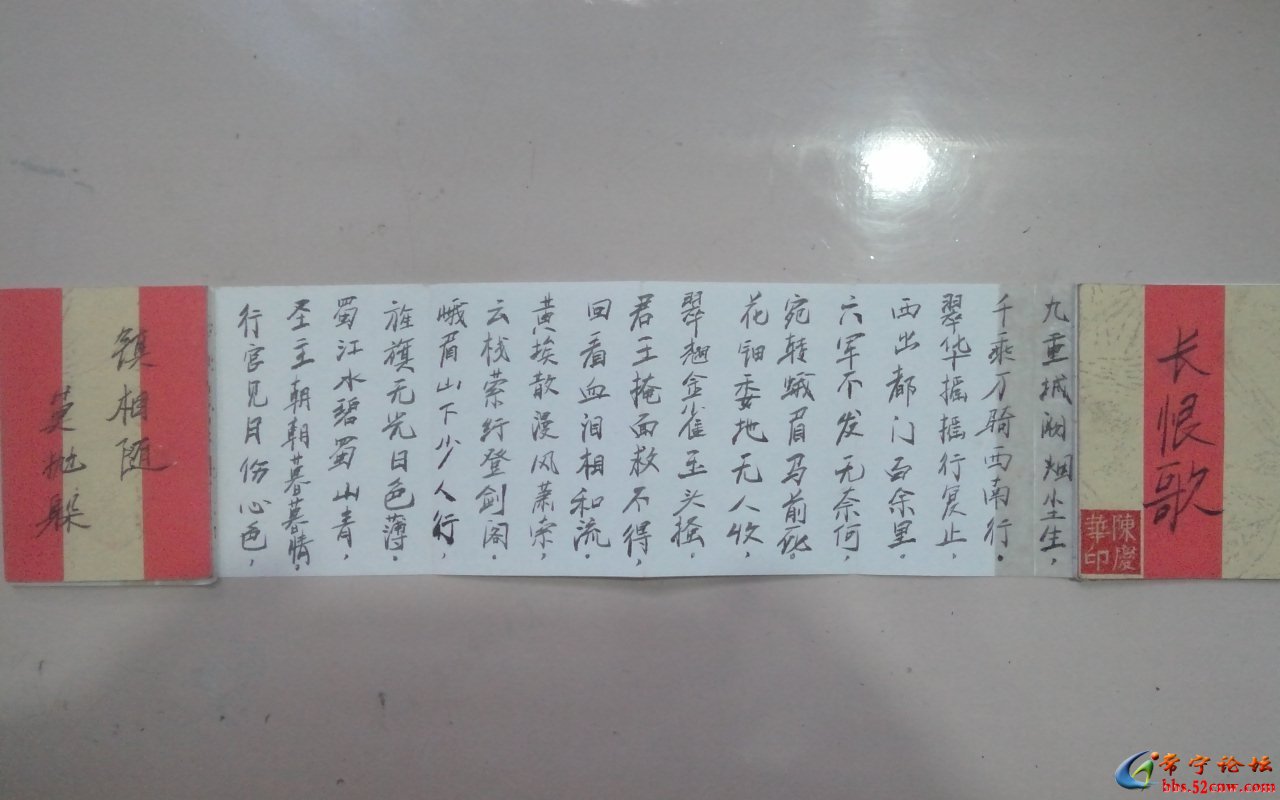 长恨歌
陳慶
華印
九重城阙烟尘生，
千乘万骑西南行。
翠华摇摇行复止，
西出都门百余里。
六军不发无奈何，
宛转蛾眉马前死。
花钿委地无人收，
翠翘金雀玉头搔。
君王掩面救不得，
回看血泪相和流。
黄埃散漫风萧索，
云栈萦纡登剑阁。
峨眉山下少人行，
旌旗无光日色薄。
蜀江水碧蜀山青，
圣主朝朝暮暮情。
行宫见月份心色，
镇相随
莫抛躲
常宁论坛
bbs.52cnw.com